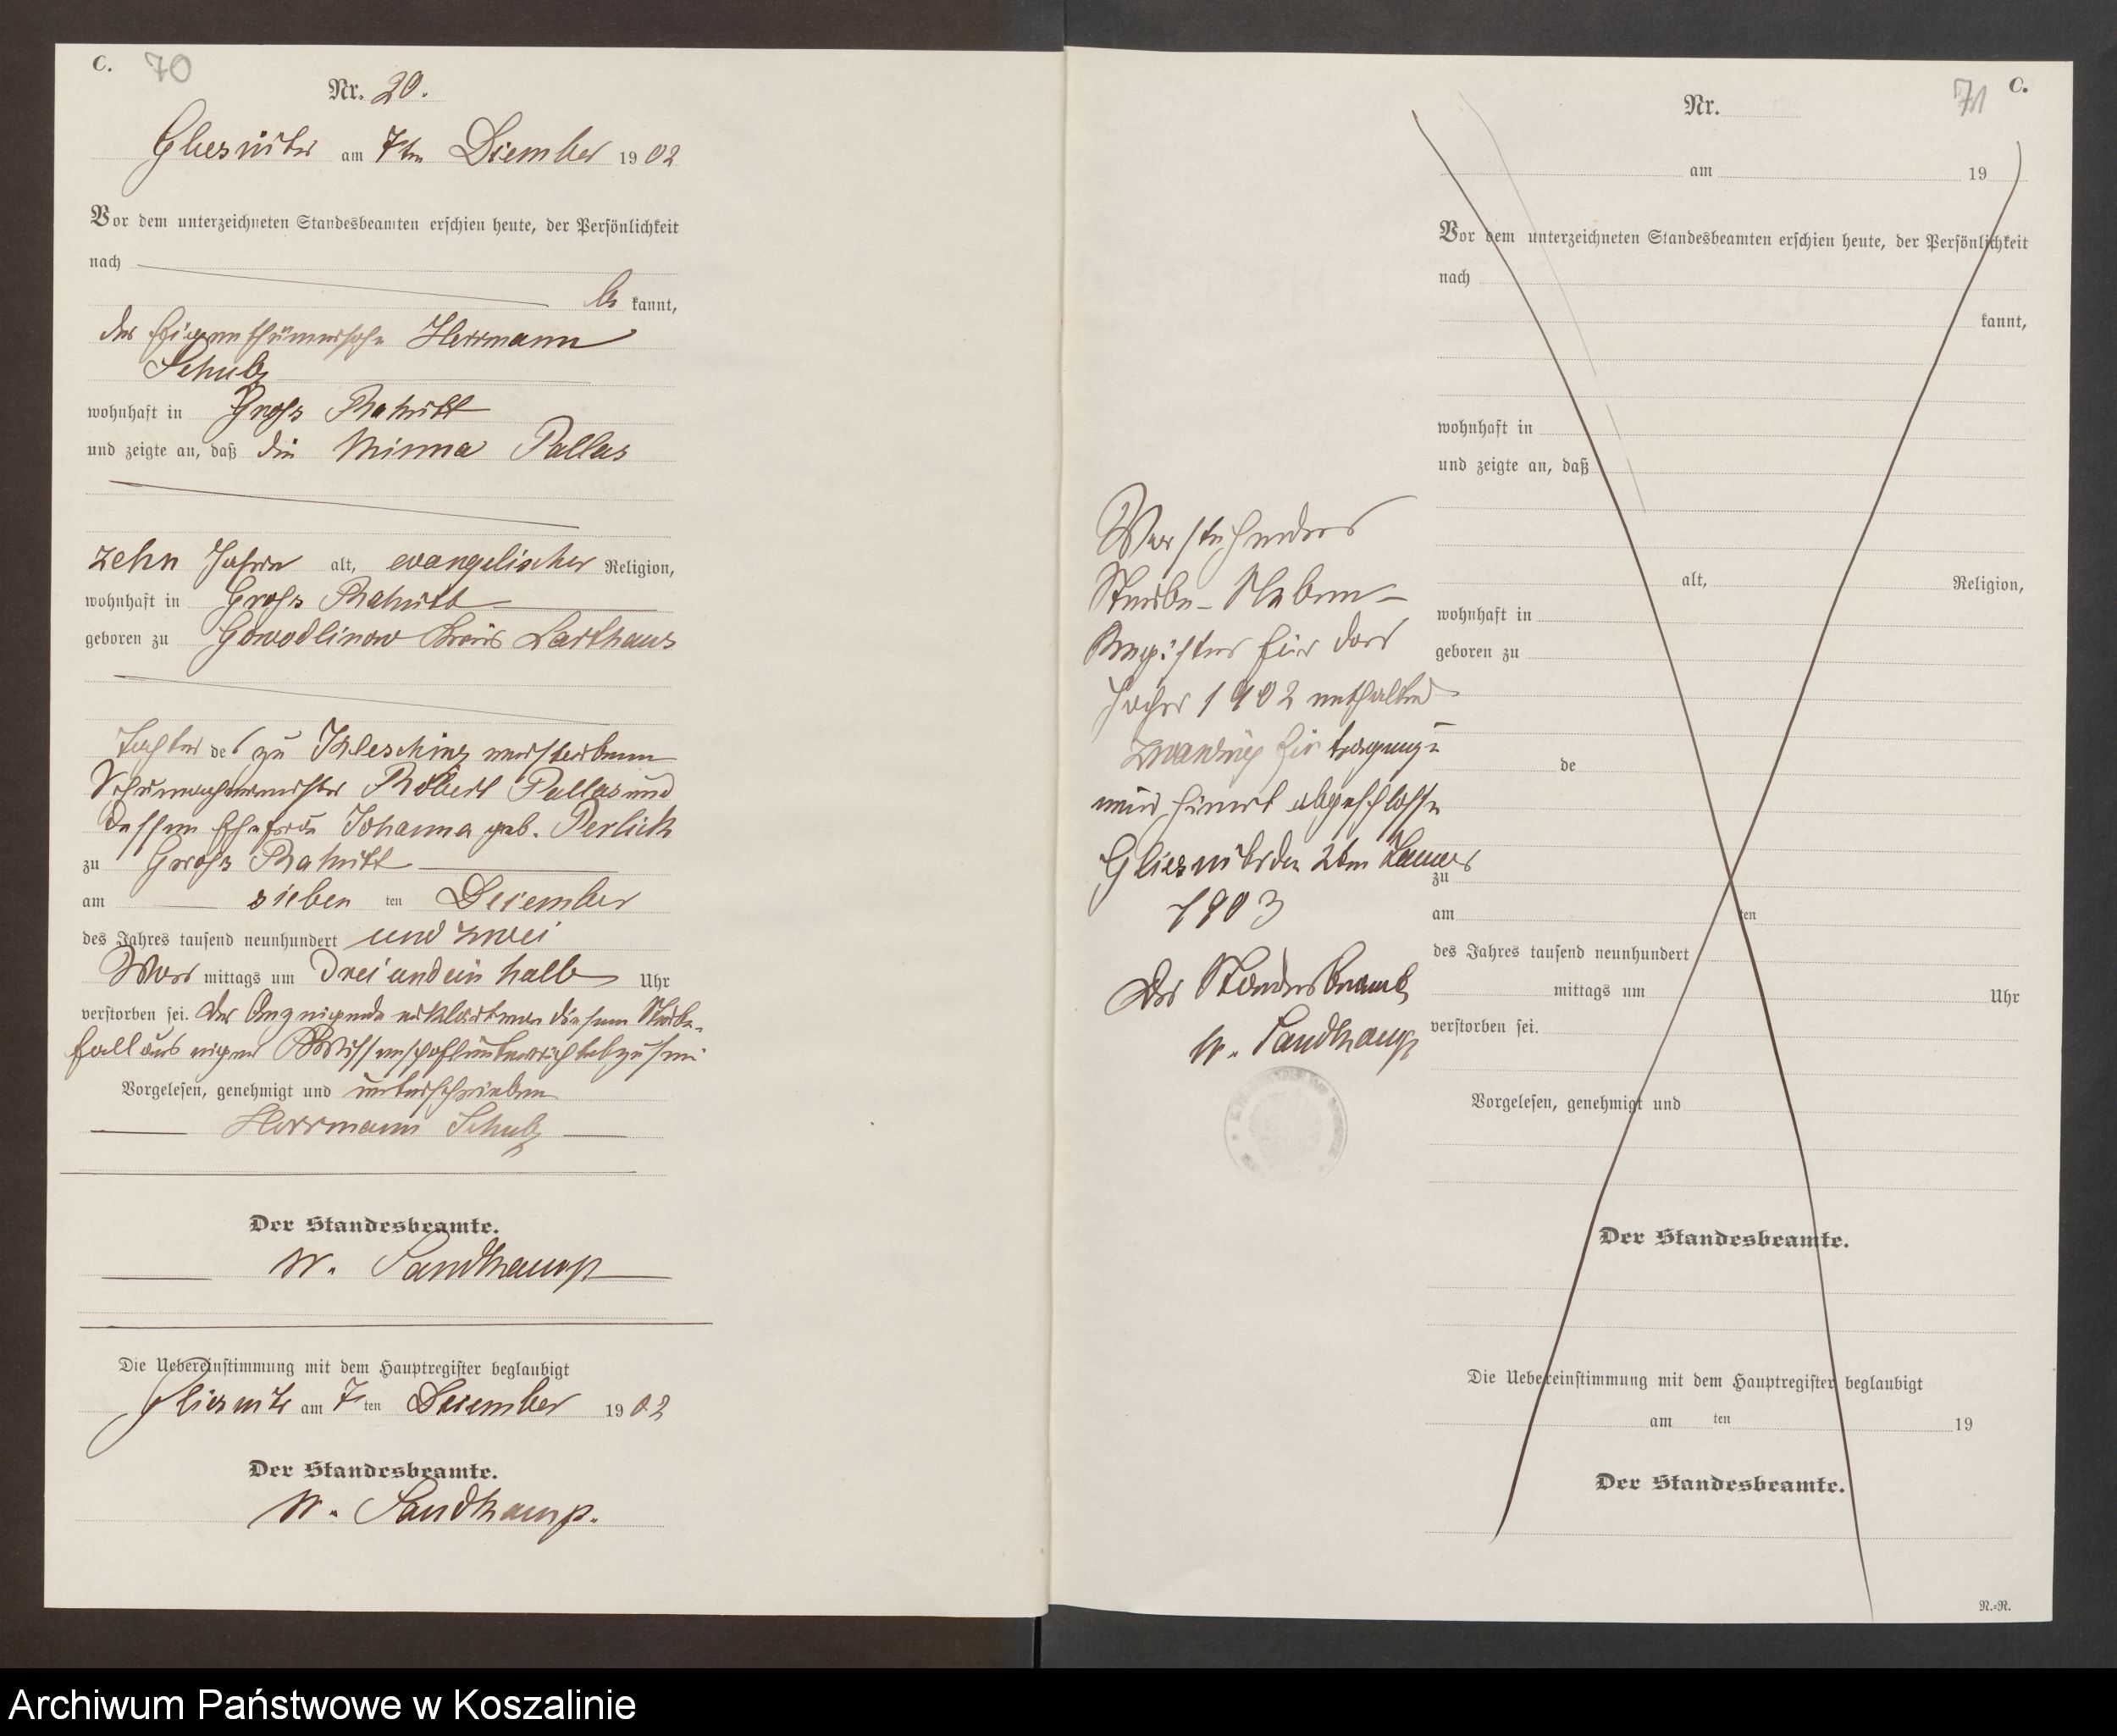 C. 70
Nr. 20.
Gliesnitz am 7ten Dezember 1902
Vor dem unterzeichneten Standesbeamten erschien heute, der Persönlichkeit
nach
be kannt,
der Eigenthümersohn Herrmann
Schulz
wohnhaft in Groß Rakitt
und zeigte an, daß die Minna Pallas
zehn Jahre alt, evangelischer Religion,
wohnhaft in Groß Rakitt
geboren zu Gowodlinow Kreis Karthaus
Tochter des zu verstorbenen
Schumachermeister Robert Pallas und
dessen Ehefrau Johanna geb. Perlick
zu Groß Rakitt
am sieben ten Dezember
des Jahres tausend neunhundert und zwei
Vor mittags um drei und ein halb Uhr
verstorben sei. Der Anzeigende erklärt von diesem Sterbe-
fall aus eigener Wissenschaft unterrichtet zu sein
Vorgelesen, genehmigt und unterschrieben
Herrmann Schulz
Der Standesbeamte.
W. Sandkamp
Die Uebereinstimmung mit dem Hauptregister beglaubigt
Gliesnitz am 7ten Dezember 1902
Der Standesbeamte.
W. Sandkamp.
71 C.
Nr.
am 19
Vor dem unterzeichneten Standesbeamten erschien heute, der Persönlichkeit
nach
kannt,
wohnhaft in
und zeigte an, daß
alt, Religion,
wohnhaft in
geboren zu
de
zu
am ten
des Jahres tausend neunhundert
mittags um Uhr
verstorben sei.
Vorgelesen, genehmigt und
Der Standesbeamte.
Die Uebereinstimmung mit dem Hauptregister beglaubigt
am ten 19
Der Standesbeamte.
N.-R.
Vorstehendes
Sterbe-Neben-
Register für das
Jahr 1902 enthaltend
zwanzig Eintragunge
wird hiermit abgeschlosse
Gliesnitz den 2ten Januar
1903
Der Standesbeamte
W. Sandkamp
Archiwum Państwowe w Koszalinie